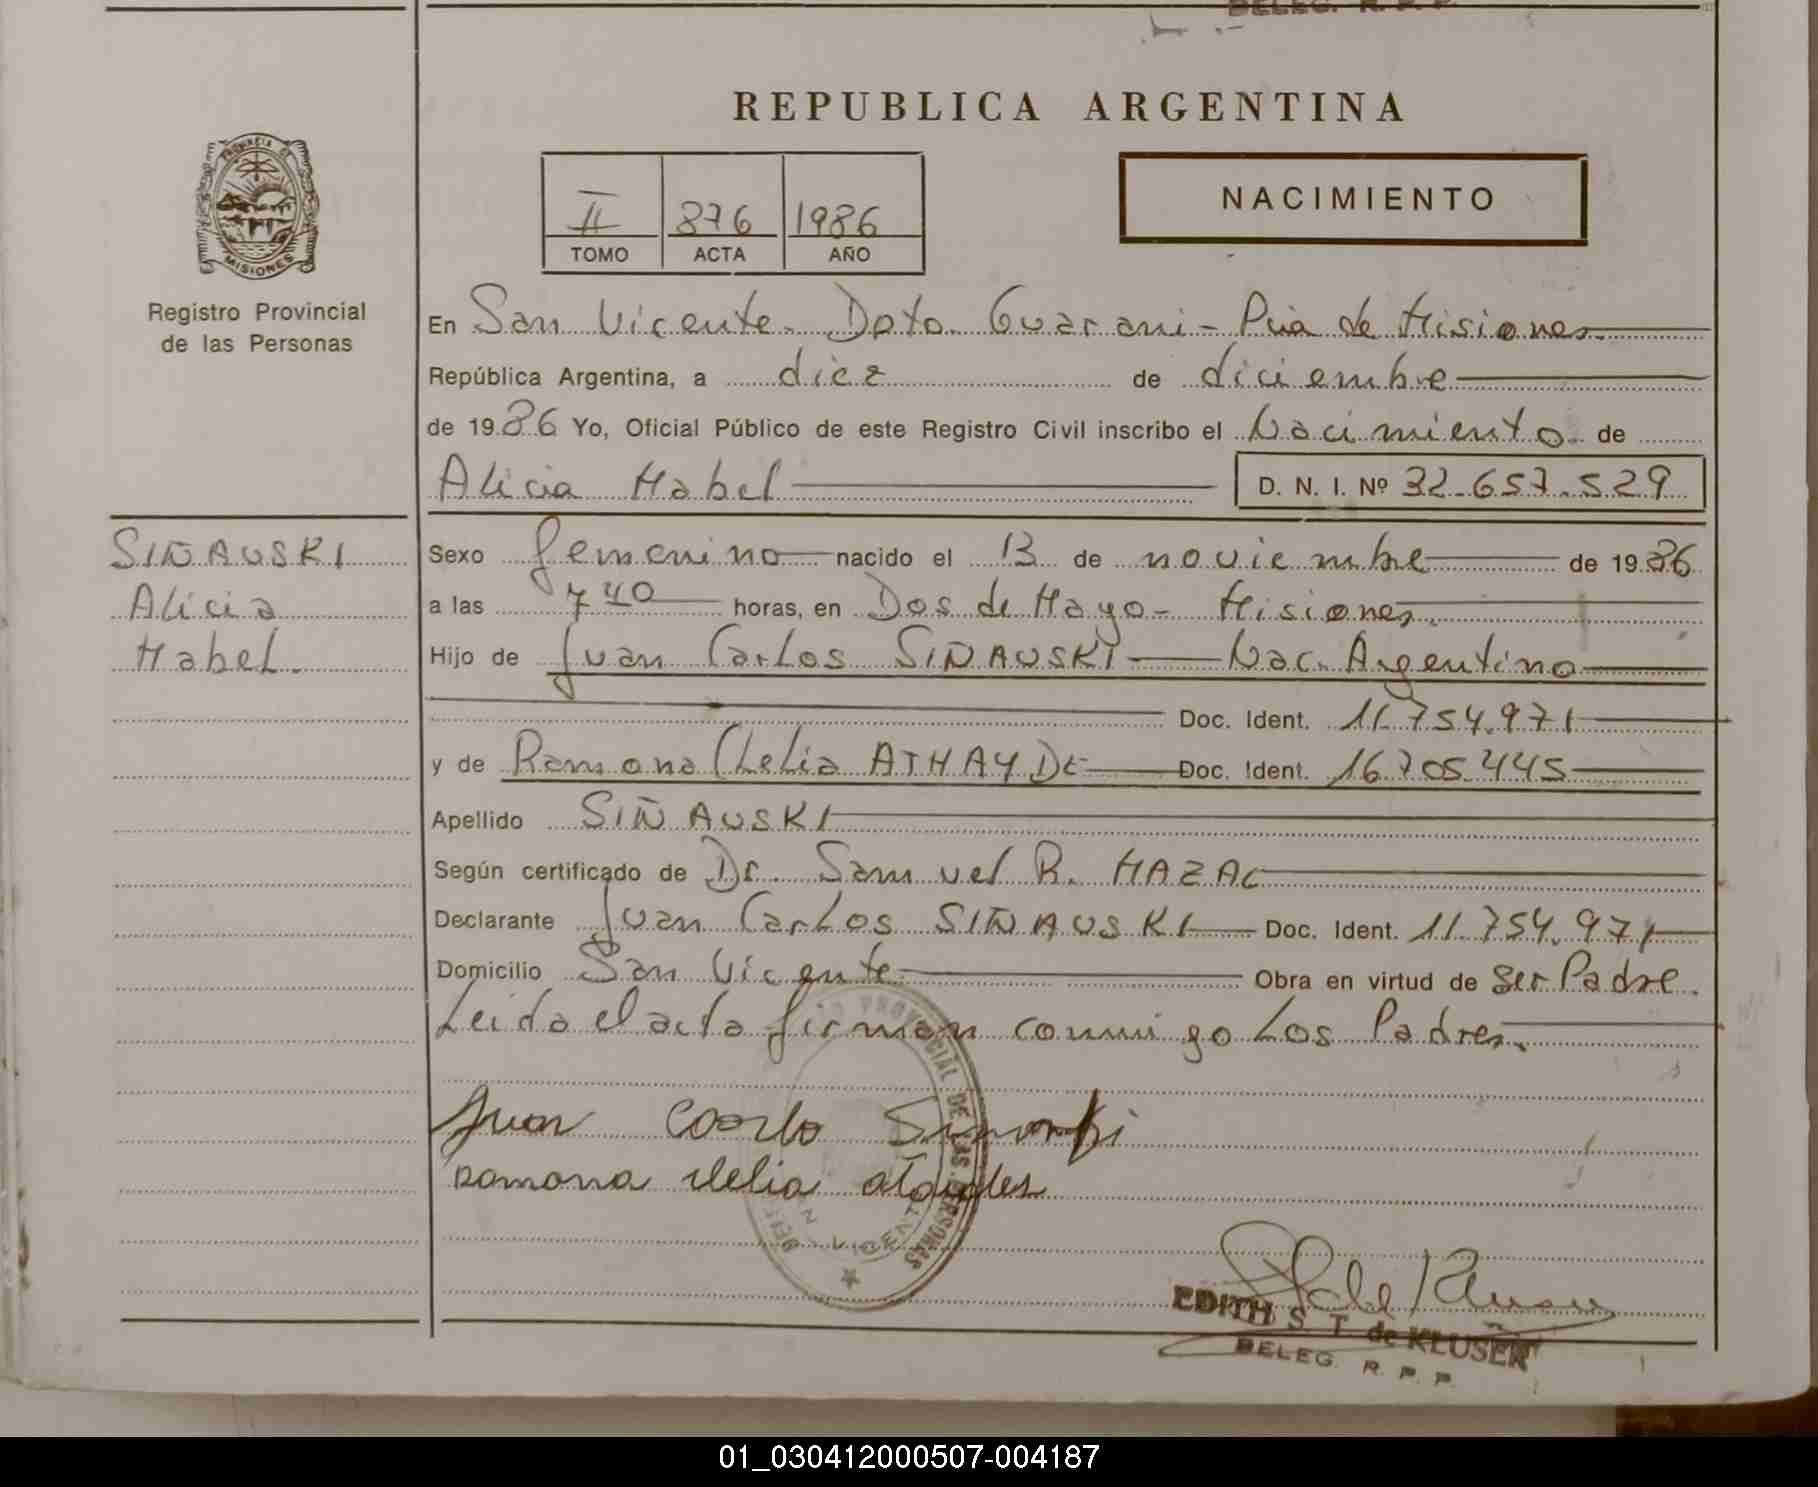 DELEG. R. P. P.
REPUBLICA ARGENTINA
PROVINCIA DE
MISIONES
Registro Provincial
de las Personas
II 876 1986
TOMO ACTA AÑO
NACIMIENTO
En San Vicente. Dpto. Guarani - Pcia de Misiones.
República Argentina, a diez de diciembre
de 1986 Yo, Oficial Público de este Registro Civil inscribo el Nacimiento de
Alicia Mabel D. N. I. Nº 32.657.529
SIÑAUSKI
Alicia
Mabel.
Sexo femenino nacido el 13 de noviembre de 1986
a las 7 40 horas, en Dos de Mayo - Misiones.
Hijo de Juan Carlos SIÑAUSKI Nac. Argentino
Doc. Ident. 11.754.971
y de Ramona Clelia ATHAYDE Doc. Ident. 16.705.445
Apellido SIÑAUSKI
Según certificado de Dr. Samuel R. MAZAC
Declarante Juan Carlos SIÑAUSKI Doc. Ident. 11.754.971
Domicilio San Vicente Obra en virtud de ser Padre.
Leida el acta firman conmigo Los Padres.
Juan Coarlo
Ramona clelia
PROVINCIAL DE LAS PERSONAS
VICENTE
EDITH S. T. de KLUSER
DELEG. R. P. P.
01_030412000507-004187